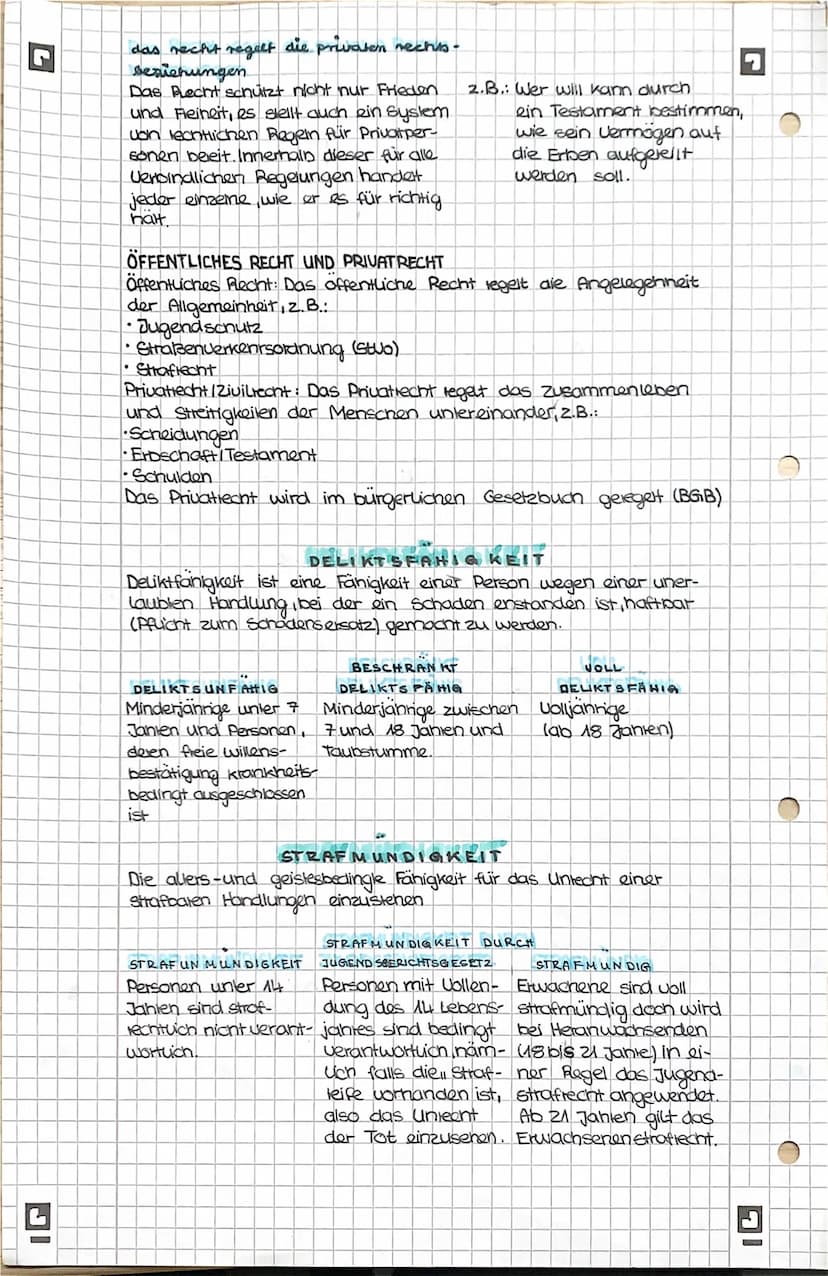 das recht regelt die privaten rechts-
beziehungen
Das Recht schützt nicht nur Frieden
und Freiheit, es stellt auch ein System
von rechtlichen Regeln für Privatper-
sonen bereit. Innerhalb dieser für alle
Verbindlichen Regelungen handelt
jeder einzelne, wie er es für richtig
hält.
z.B.: Wer will kann durch
ein Testament bestimmen,
wie sein Vermögen auf
die Erben aufgeteilt
werden soll.
ÖFFENTLICHES RECHT UND PRIVATRECHT
Öffentliches Recht: Das öffentliche Recht regelt die Angelegenheit
der Allgemeinheit, z.B.:
• Jugendschutz
• Straßenverkehrsordnung (StVo)
• Strafrecht
Privatrecht/Zivilrecht: Das Privatrecht regelt das Zusammenleben
und Streitigkeiten der Menschen untereinander, z.B.:
• Scheidungen
• Erbschaft/Testament
• Schulden
Das Privatrecht wird im bürgerlichen Gesetzbuch geregelt (BGB)
DELIKTSFÄHIGKEIT
Deliktfähigkeit ist eine Fähigkeit einer Person wegen einer uner-
laubten Handlung, bei der ein Schaden enstanden ist, haftbar
(Pflicht zum Schadensersatz) gemacht zu werden.
DELIKTSUNFÄHIG
Minderjährige unter 7
Jahren und Personen,
deren freie Willens-
bestätigung krankheits-
bedingt ausgeschlossen
ist
BESCHRÄNKT
DELIKTSFÄHIG
Minderjährige zwischen
7 und 18 Jahren und
Taubstumme.
VOLL
DELIKTSFÄHIG
Volljährige
(ab 18 Jahren)
STRAFMÜNDIGKEIT
Die alters-und geistesbedingte Fähigkeit für das Unrecht einer
strafbaren Handlungen einzustehen
STRAFUNMÜNDIGKEIT
Personen unter 14
Jahren sind straf-
rechtlich nicht verant-
wortlich.
STRAFMÜNDIGKEIT DURCH
JUGENDSGERICHTSGESETZ
Personen mit Vollen-
dung des 14 Lebens-
jahres sind bedingt
verantwortlich, näm-
lich falls die „Straf-
reife vorhanden ist,
also das Unrecht
der Tat einzusehen.
STRAFMÜNDIG
Erwachene sind voll
strafmündig doch wird
bei Heranwachsenden
(18 bis 21 Jahre) in ei-
ner Regel das Jugend-
strafrecht angewendet.
Ab 21 Jahren gilt das
Erwachsenenstrafrecht.